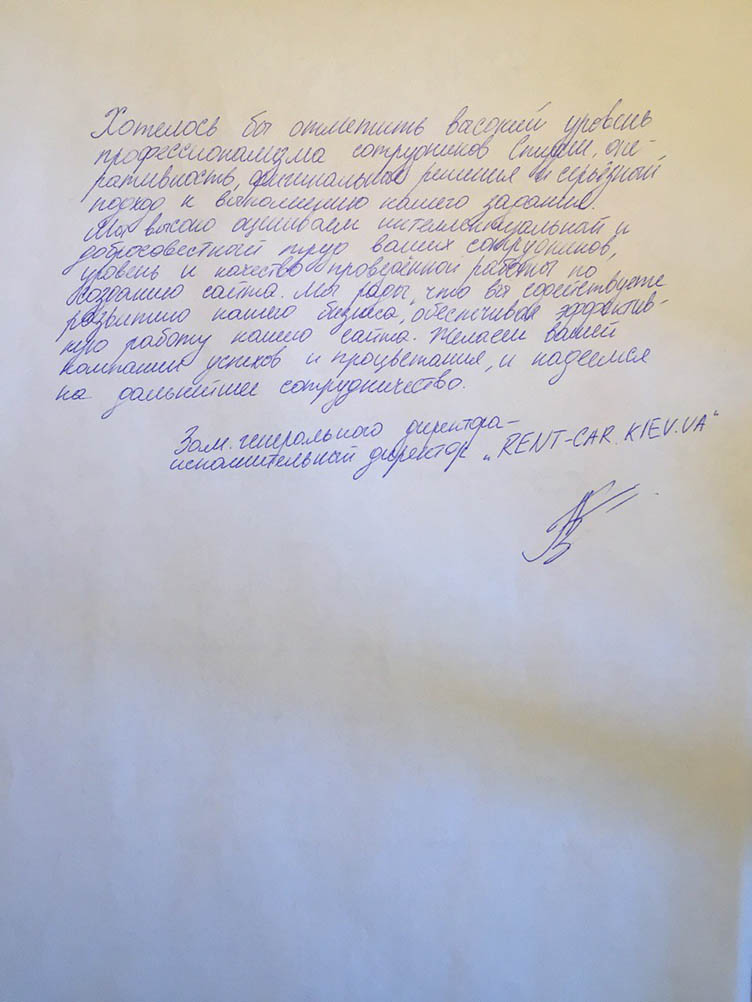 Хотелось бы отметить высокий уровень
профессионализма сотрудников Студии, опе-
ративность, оригинальные решения и серьёзный
подход к выполнению нашего задания.
Мы высоко оцениваем интеллектуальный и
добросовестный труд ваших сотрудников,
уровень и качество проведённой работы по
созданию сайта. Мы рады, что вы содействуете
развитию нашего бизнеса, обеспечивая эффектив-
ную работу нашего сайта. Желаем вашей
компании успехов и процветания, и надеемся
на дальнейшее сотрудничество.
Зам. генерального директора-
исполнительный директор „RENT-CAR.KIEV.UA"